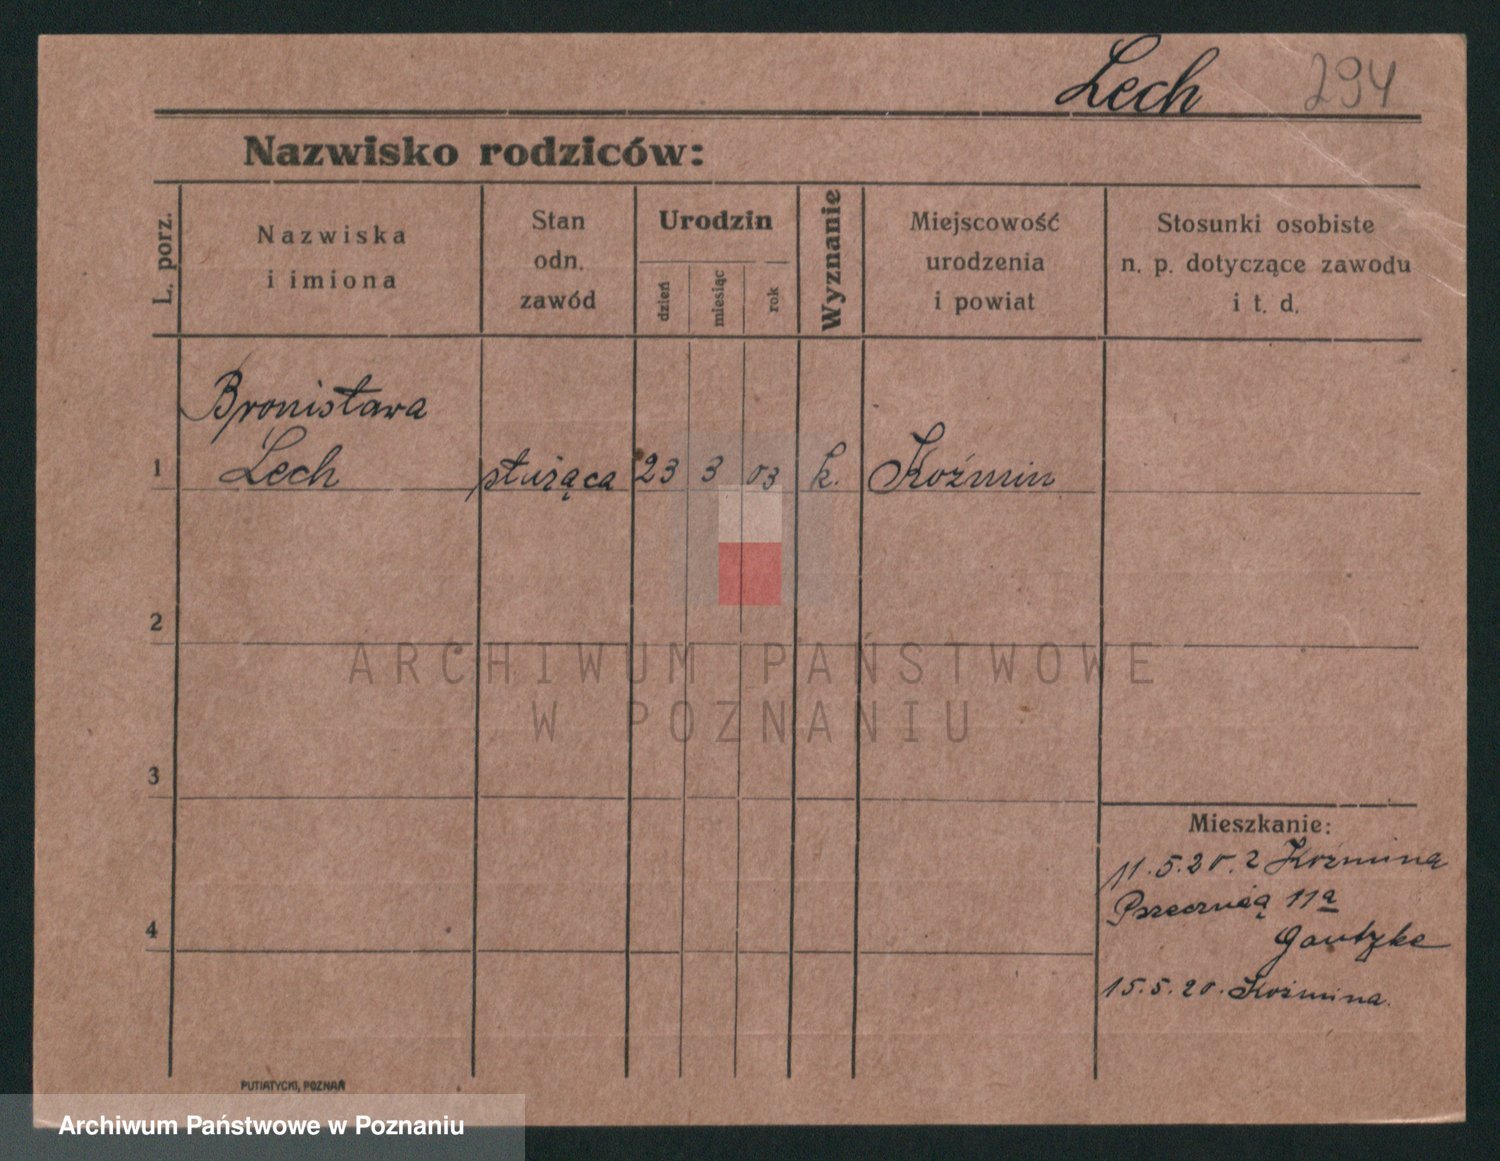 Lech 294
Nazwisko rodziców:
L. porz.
Nazwiska
i imiona
Stan
odn.
zawód
Urodzin
dzień
miesiąc
rok
Wyznanie
Miejscowość
urodzenia
i powiat
Stosunki osobiste
n. p. dotyczące zawodu
i t. d.
Bronisława
1 Lech służąca 23 3 03 k. Koźmin
2
ARCHIWUM PAŃSTWOWE
W POZNANIU
3
4
Mieszkanie:
11.5.20. z Koźmina
11a
15.5.20. Koźmina.
PUTIATYCKI, POZNAŃ
Archiwum Państwowe w Poznaniu